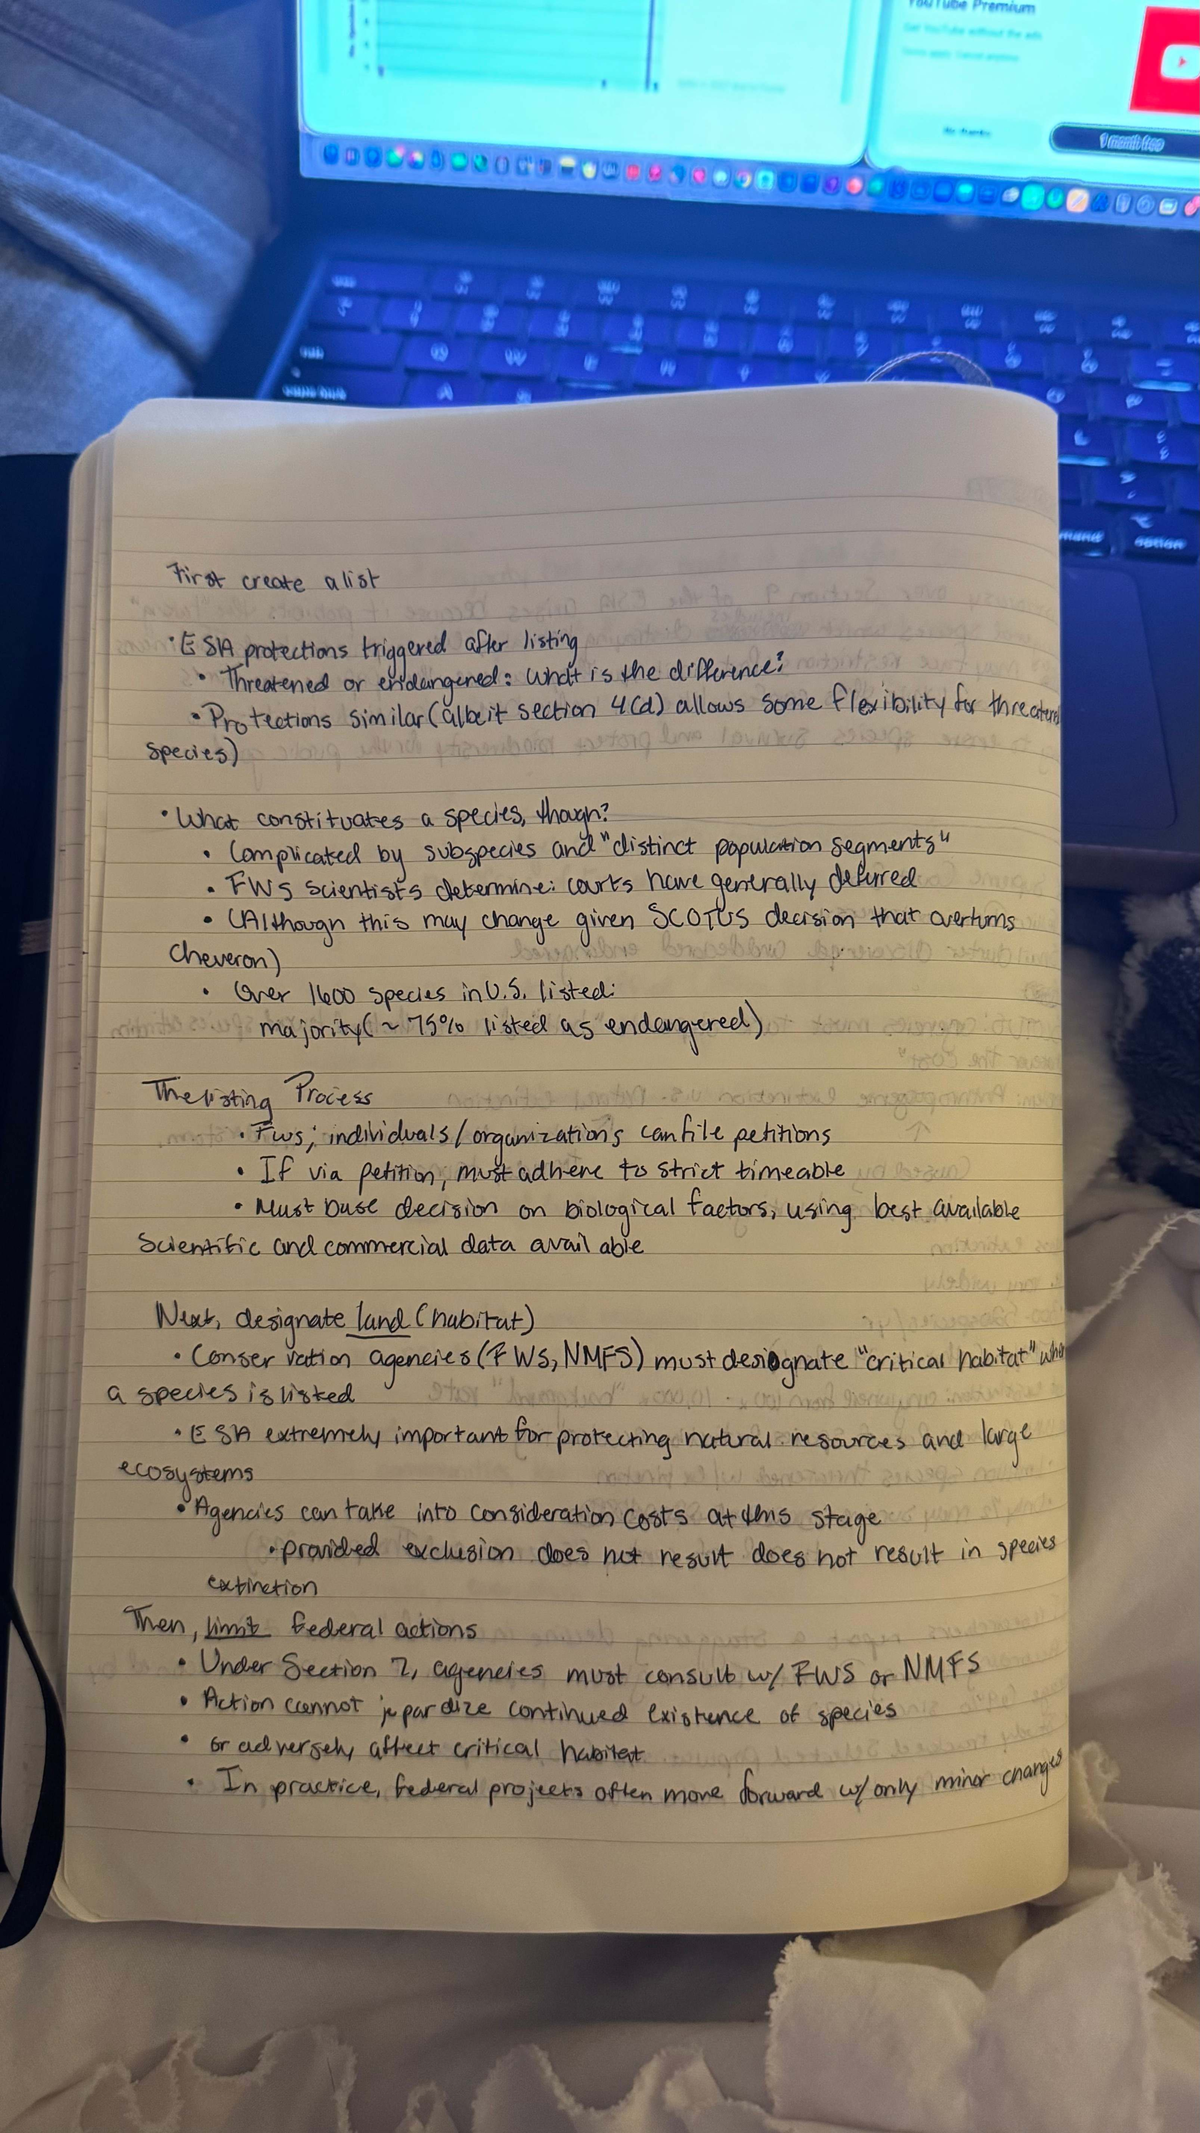 YouTube Premium
1 month free
option
First create a list
• ESA protections triggered after listing
• Threatened or endangered: what is the difference?
• Protections similar (albeit section 4(d) allows some flexibility for threatened
species)
• What constituates a species, though?
• Complicated by subspecies and "distinct population segments"
• FWS scientists determine: courts have generally defurred
• (Although this may change given SCOTUS decision that overturns
Cheveron)
• Over 1600 species in U.S. listed:
majority (~ 75% listed as endangered)
The listing Process
• FWS; individuals/organizations can file petitions
• If via petition, must adhere to strict timeable
• Must base decision on biological factors, using best available
Scientific and commercial data available
Next, designate land (habitat)
• Conservation agencies (FWS, NMFS) must designate "critical habitat" when
a species is listed
• ESA extremely important for protecting natural resources and large
ecosystems
• Agencies can take into consideration costs at this stage
• provided exclusion does not result does not result in species
extinction
Then, limit federal actions
• Under Section 7, agencies must consult w/ FWS or NMFS
• Action cannot jepardize continued existence of species
• or adversely affect critical habitat
• In practice, federal projects often move forward w/ only minor changes